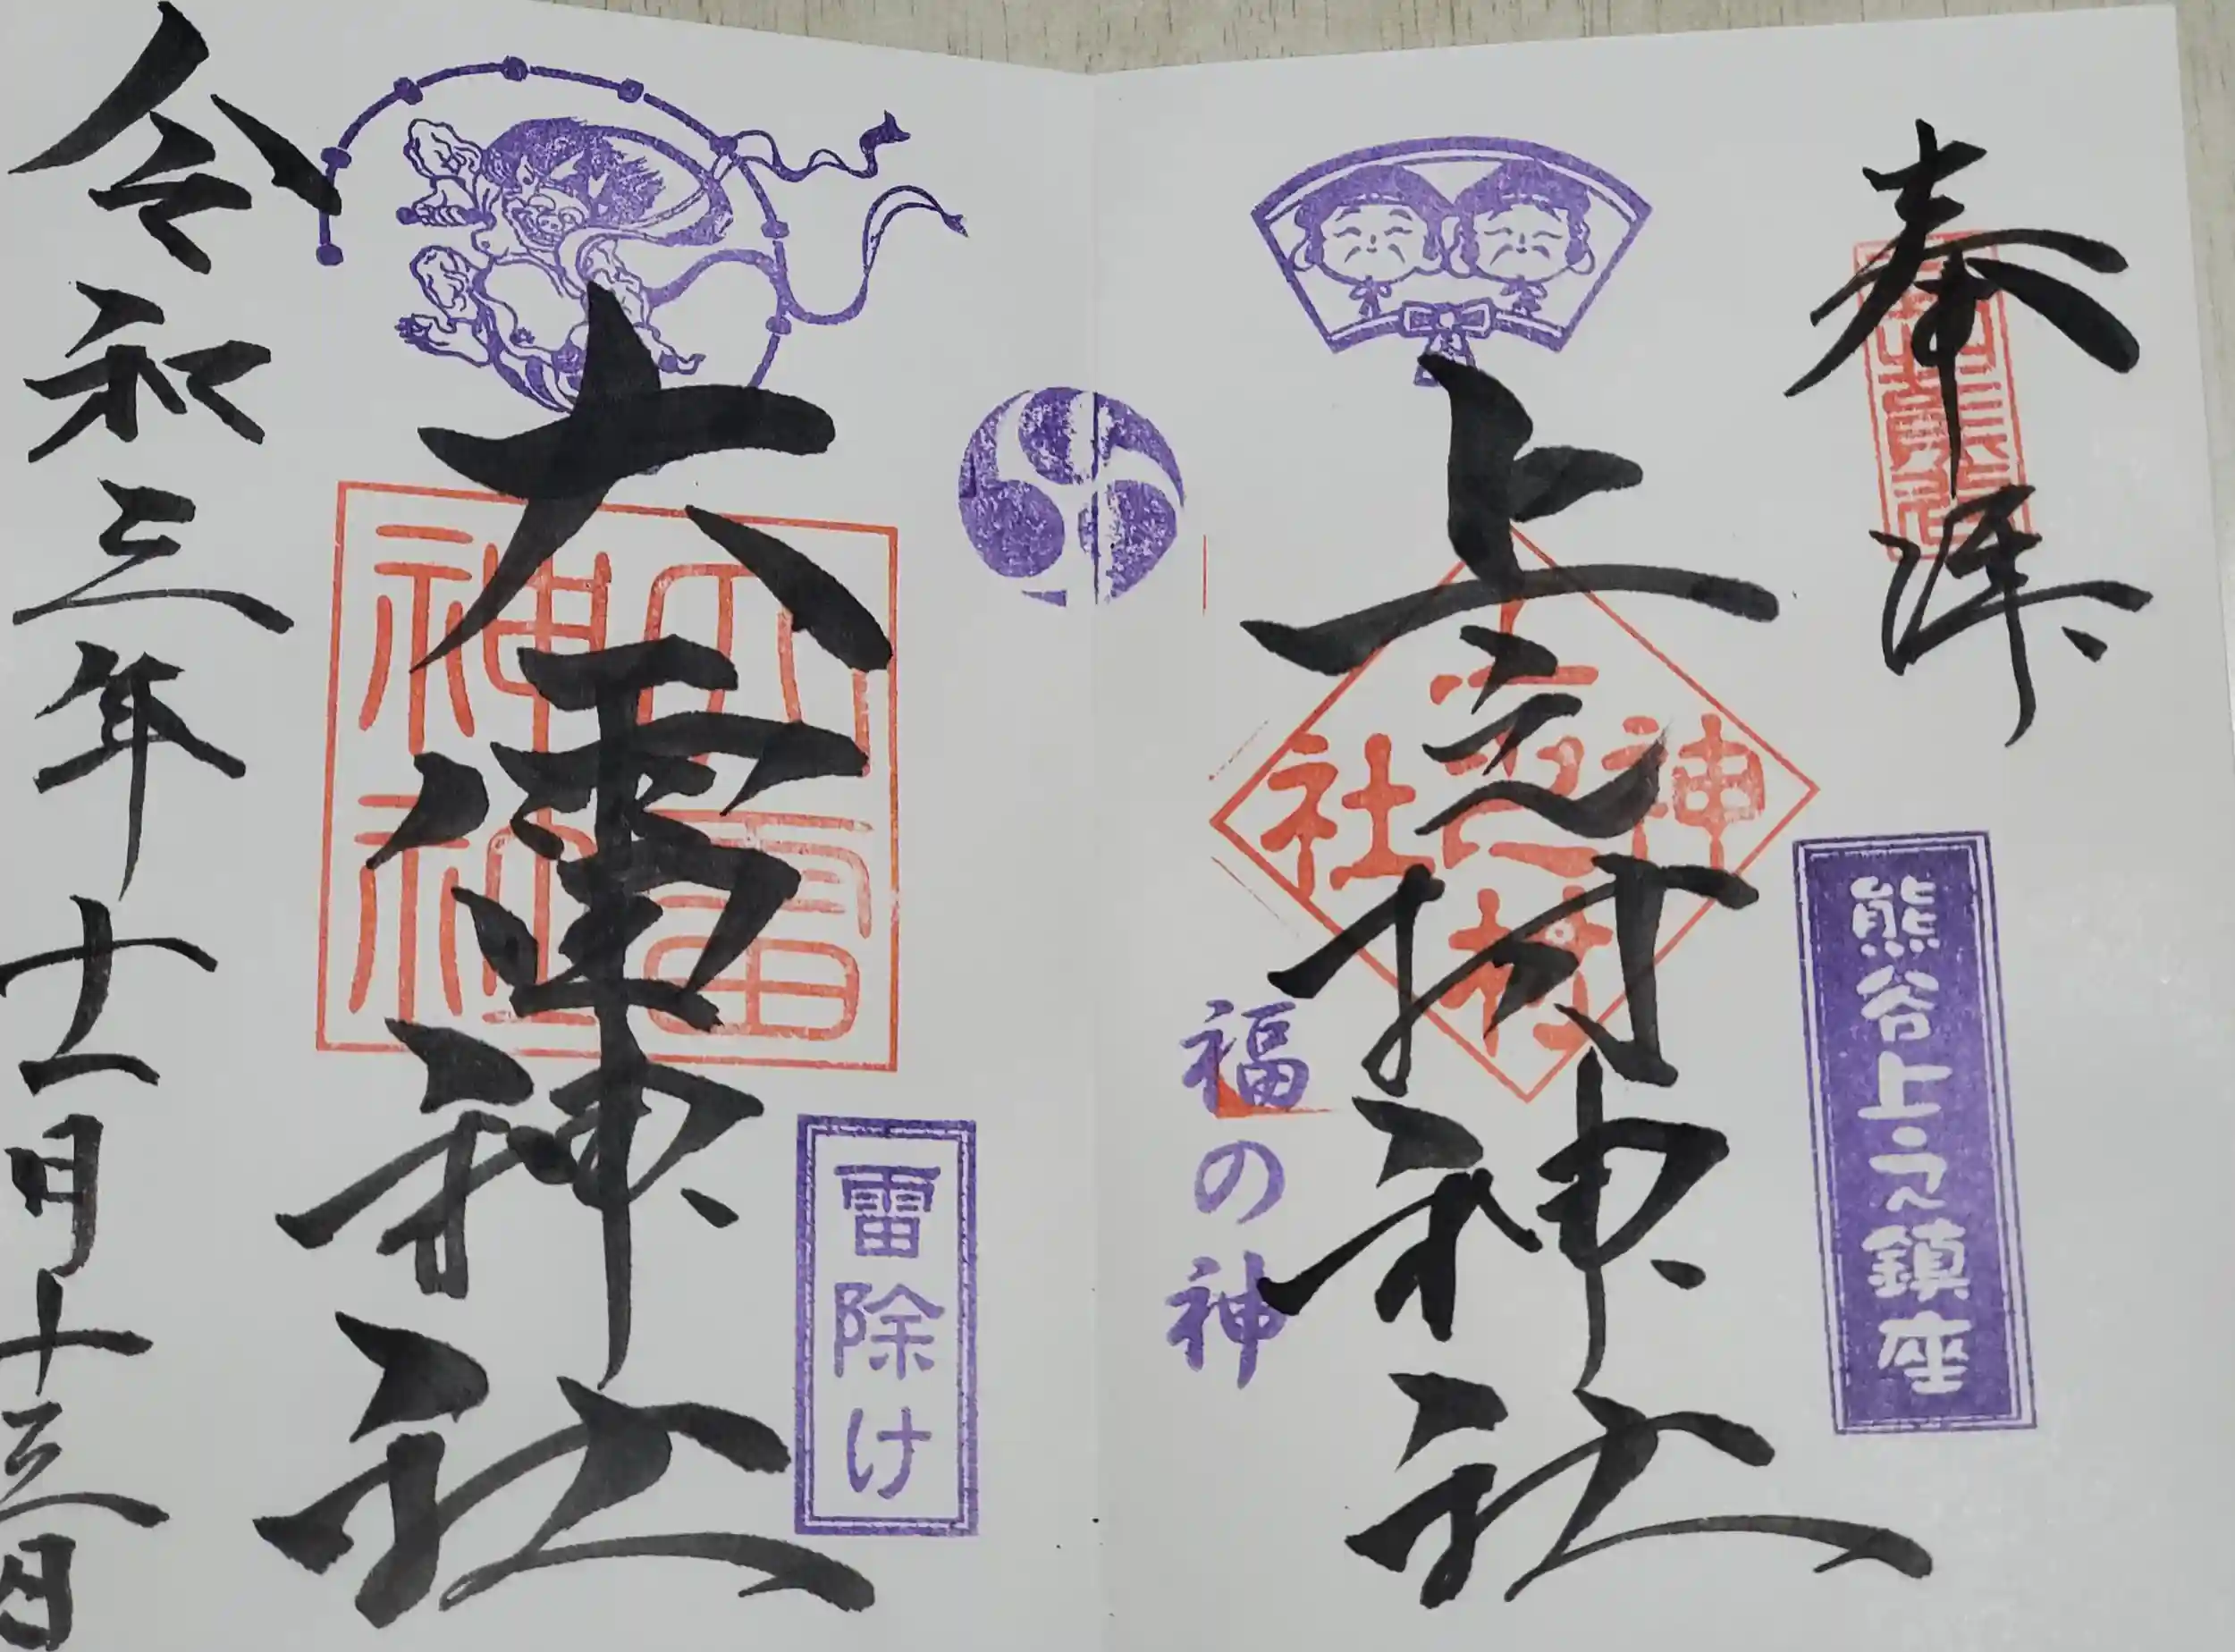 奉拝
熊谷上之鎮座
上之村神社
上之村神社
福の神
雷除け
大雷神社
大雷神社
令和三年十一月十三日